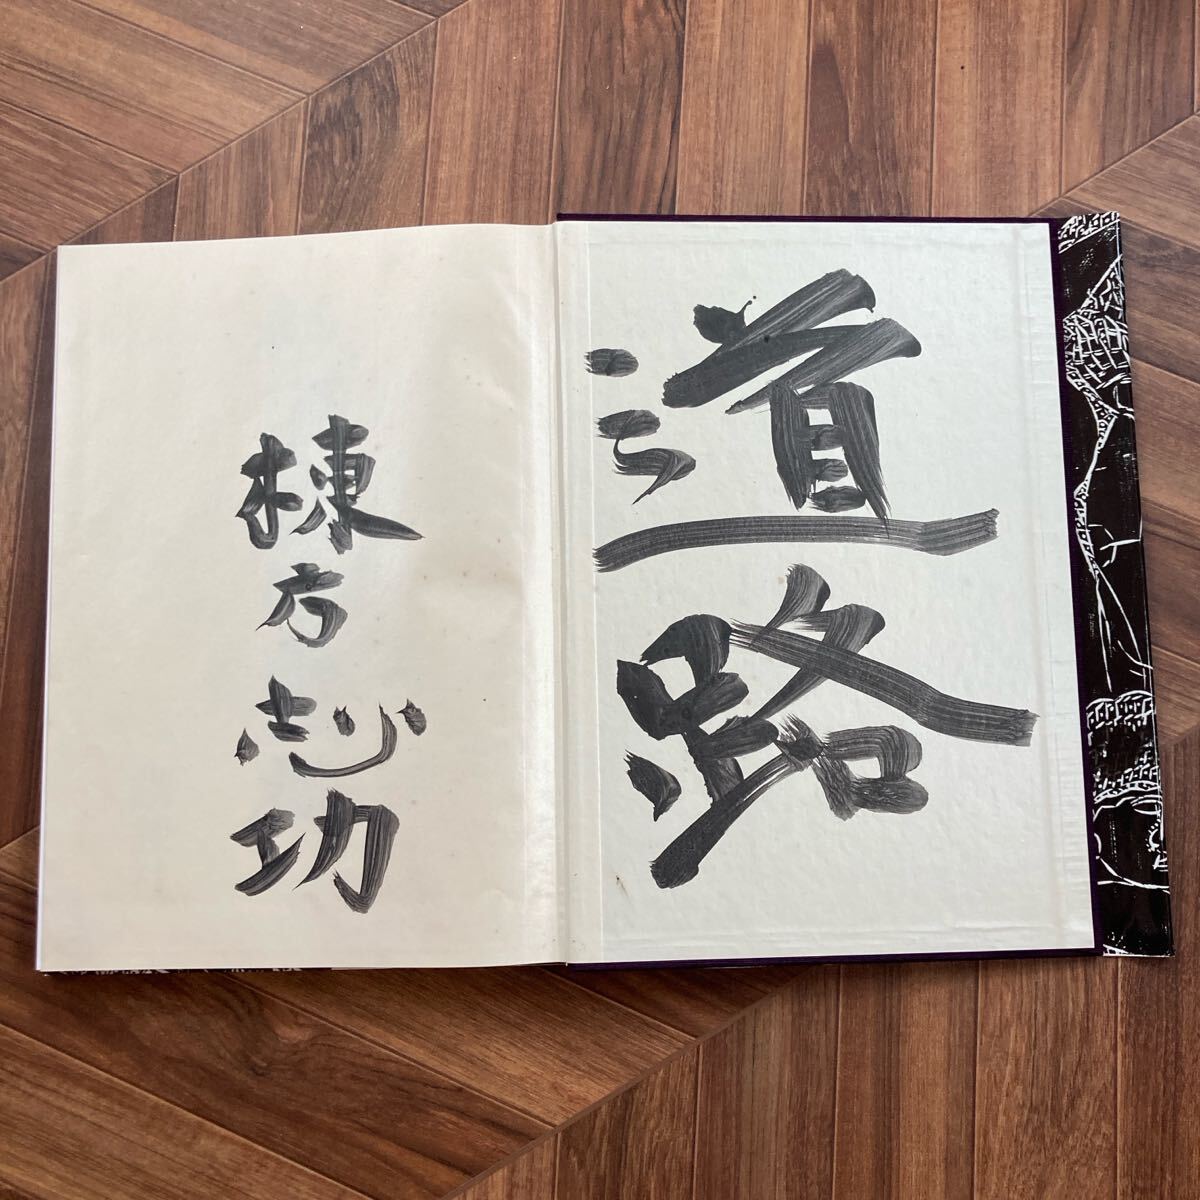 道路
棟方志功